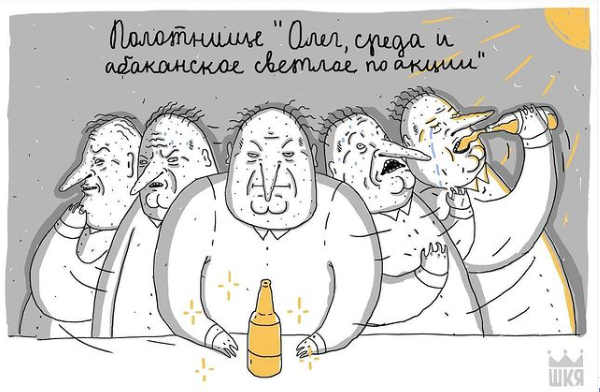 Полотнище "Олег, среда и
абаканское светлое по акции"
ШКЯ